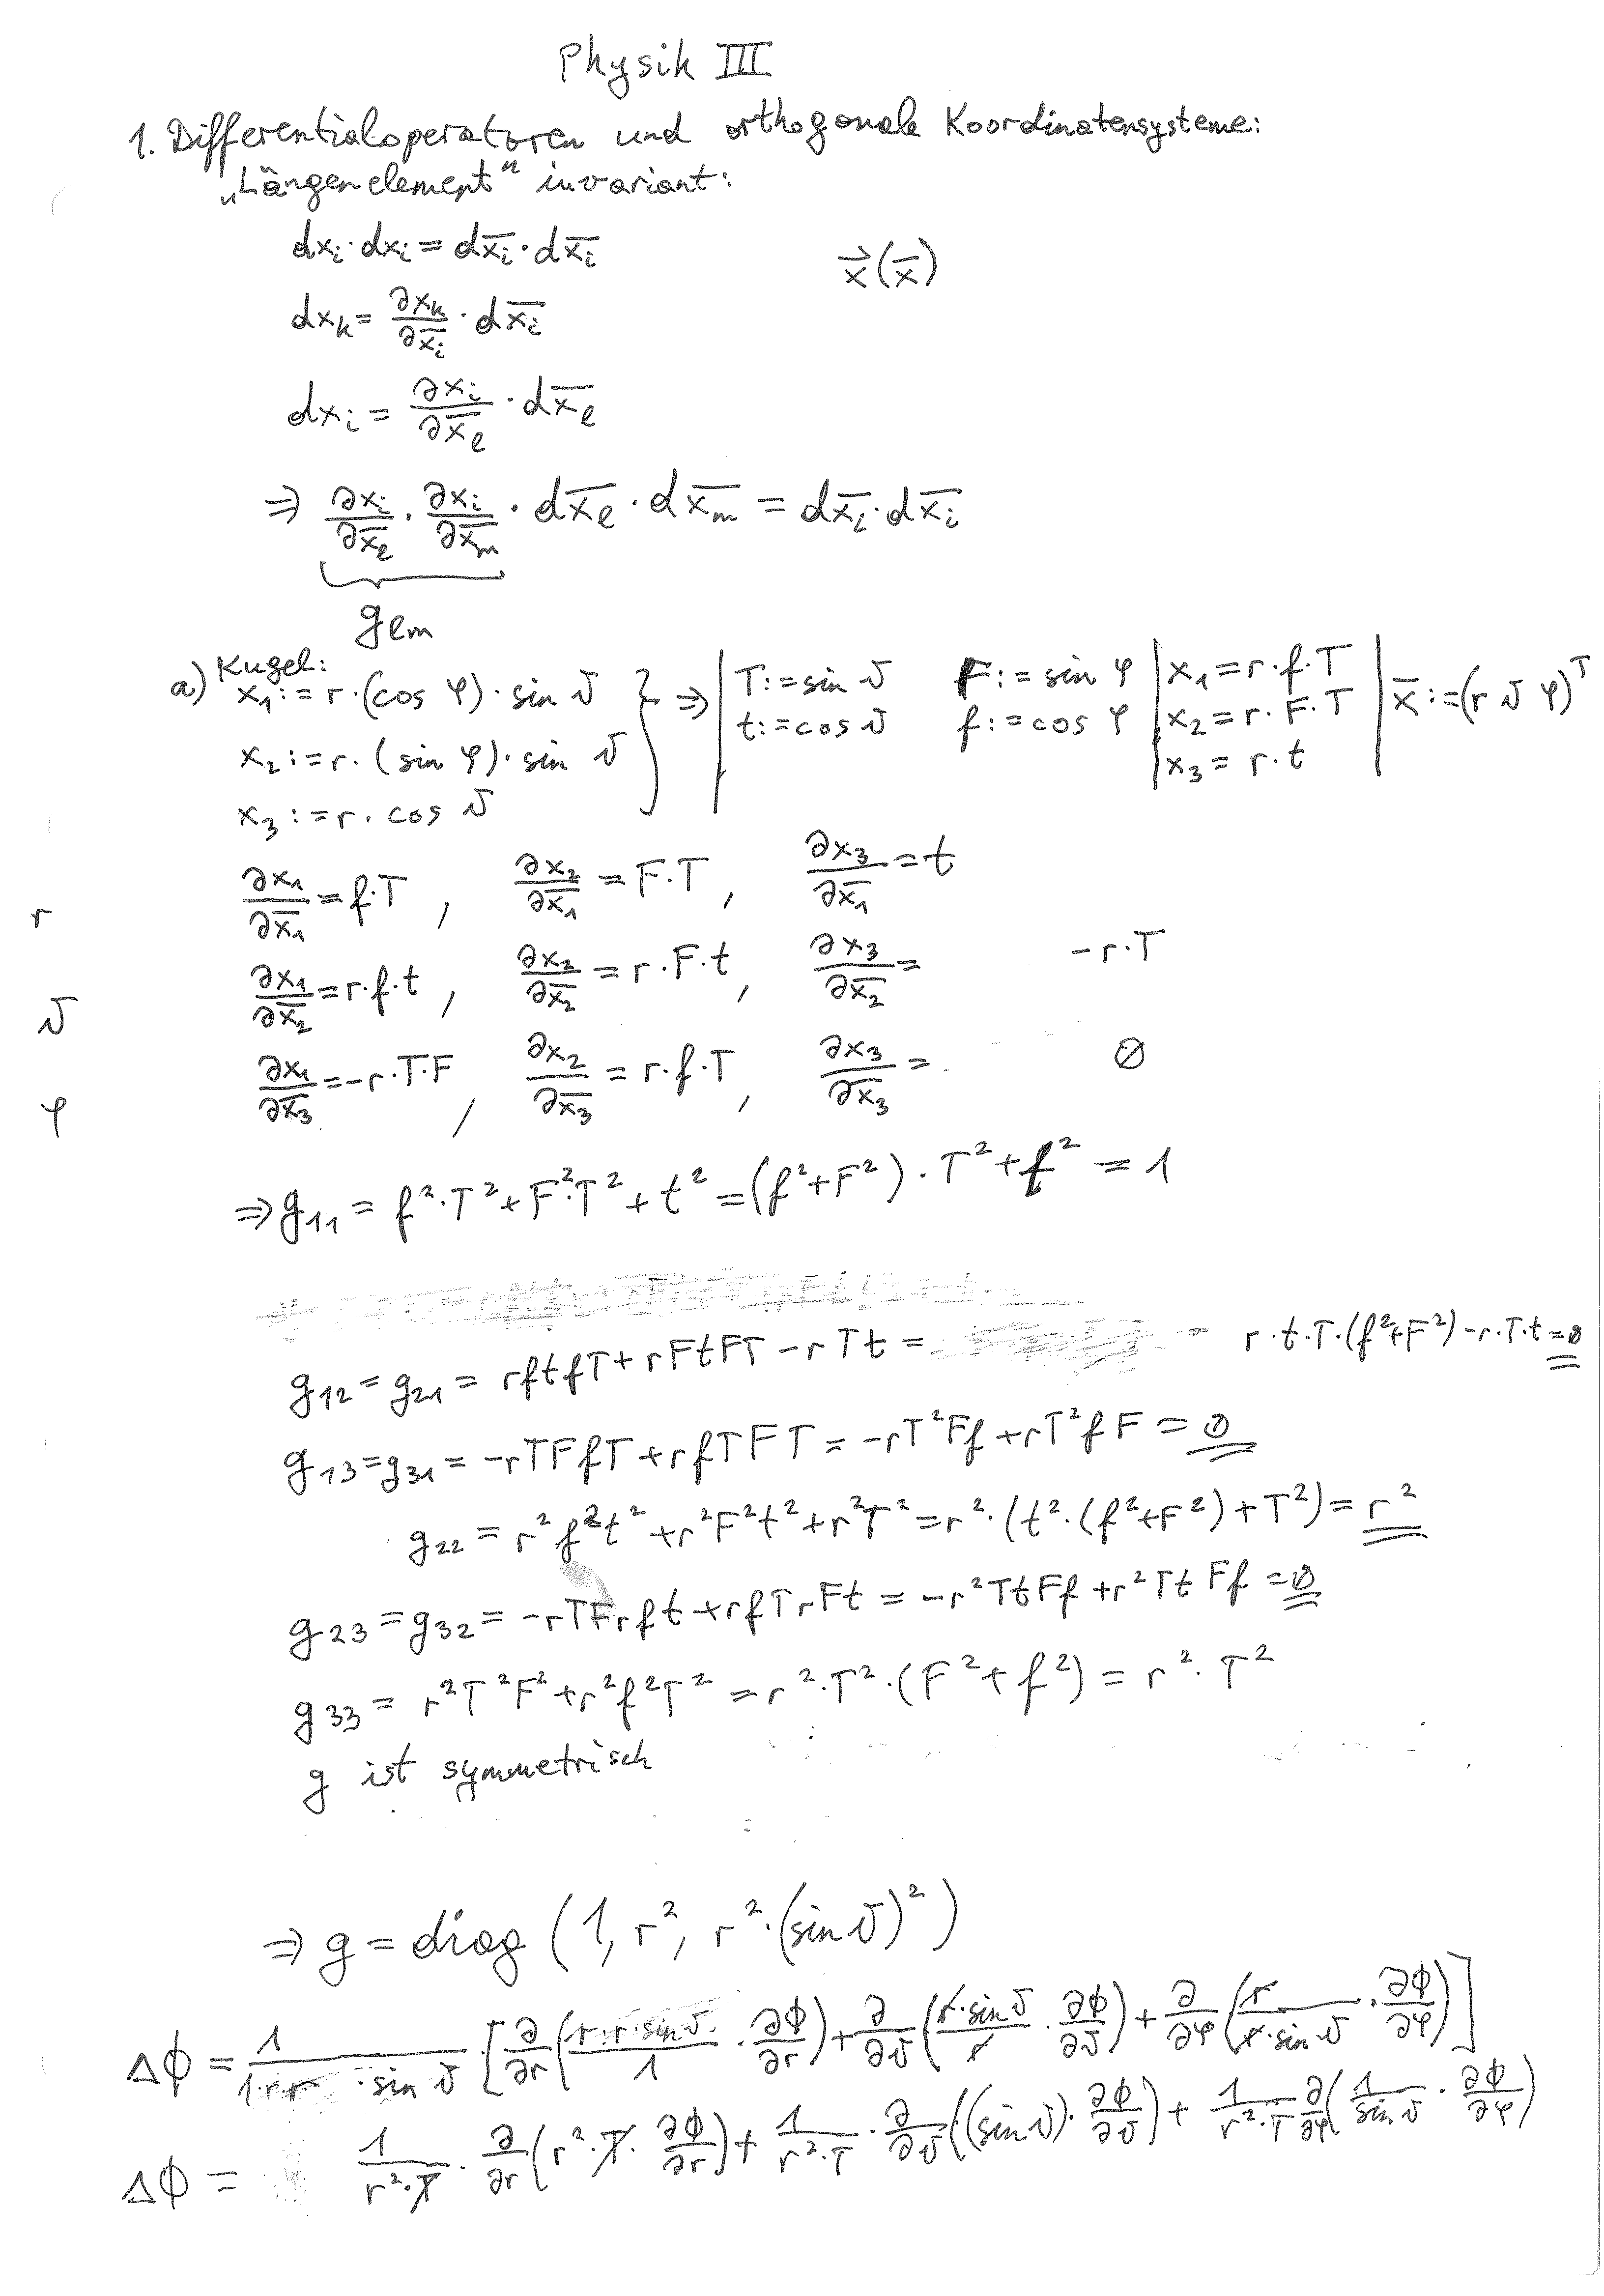 Physik III
1. Differentialoperatoren und orthogonale Koordinatensysteme:
„Längenelement" invariant:
dxᵢ·dxᵢ = dx̅ᵢ·dx̅ᵢ x⃗(x̅)
dxₖ = ∂xₖ/∂x̅ᵢ · dx̅ᵢ
dxᵢ = ∂xᵢ/∂x̅ₗ · dx̅ₗ
⇒ ∂xᵢ/∂x̅ₗ · ∂xᵢ/∂x̅ₘ · dx̅ₗ · dx̅ₘ = dx̅ᵢ·dx̅ᵢ
gₗₘ
a) Kugel:
x₁ := r·(cos φ)·sin ϑ } ⇒ | T := sin ϑ F := sin φ | x₁ = r·f·T | x̅ := (r ϑ φ)ᵀ
x₂ := r·(sin φ)·sin ϑ t := cos ϑ f := cos φ x₂ = r·F·T
x₃ := r·cos ϑ x₃ = r·t
∂x₁/∂x̅₁ = f·T, ∂x₂/∂x̅₁ = F·T, ∂x₃/∂x̅₁ = t
r
∂x₁/∂x̅₂ = r·f·t, ∂x₂/∂x̅₂ = r·F·t, ∂x₃/∂x̅₂ = -r·T
ϑ
∂x₁/∂x̅₃ = -r·T·F, ∂x₂/∂x̅₃ = r·f·T, ∂x₃/∂x̅₃ = 0
φ
⇒ g₁₁ = f²·T² + F²·T² + t² = (f²+F²)·T² + t² = 1
g₁₂ = g₂₁ = rftfT + rFtFT - rTt = = r·t·T·(f²+F²) - r·T·t = 0
g₁₃ = g₃₁ = -rTFfT + rfTFT = -rT²Ff + rT²fF = 0
g₂₂ = r²f²t² + r²F²t² + r²T² = r²·(t²·(f²+F²) + T²) = r²
g₂₃ = g₃₂ = -rTFrft + rfTrFt = -r²TtFf + r²TtFf = 0
g₃₃ = r²T²F² + r²f²T² = r²·T²·(F²+f²) = r²·T²
g ist symmetrisch
⇒ g = diag (1, r², r²·(sin ϑ)²)
ΔΦ = 1/(1·r·r·sin ϑ) · [∂/∂r (r·r·sin ϑ/1 · ∂Φ/∂r) + ∂/∂ϑ (r·sin ϑ/r · ∂Φ/∂ϑ) + ∂/∂φ (r/(r·sin ϑ) · ∂Φ/∂φ)]
ΔΦ = 1/(r²·T) · ∂/∂r (r²·T · ∂Φ/∂r) + 1/(r²·T) · ∂/∂ϑ ((sin ϑ)·∂Φ/∂ϑ) + 1/(r²·T) ∂/∂φ (1/sin ϑ · ∂Φ/∂φ)